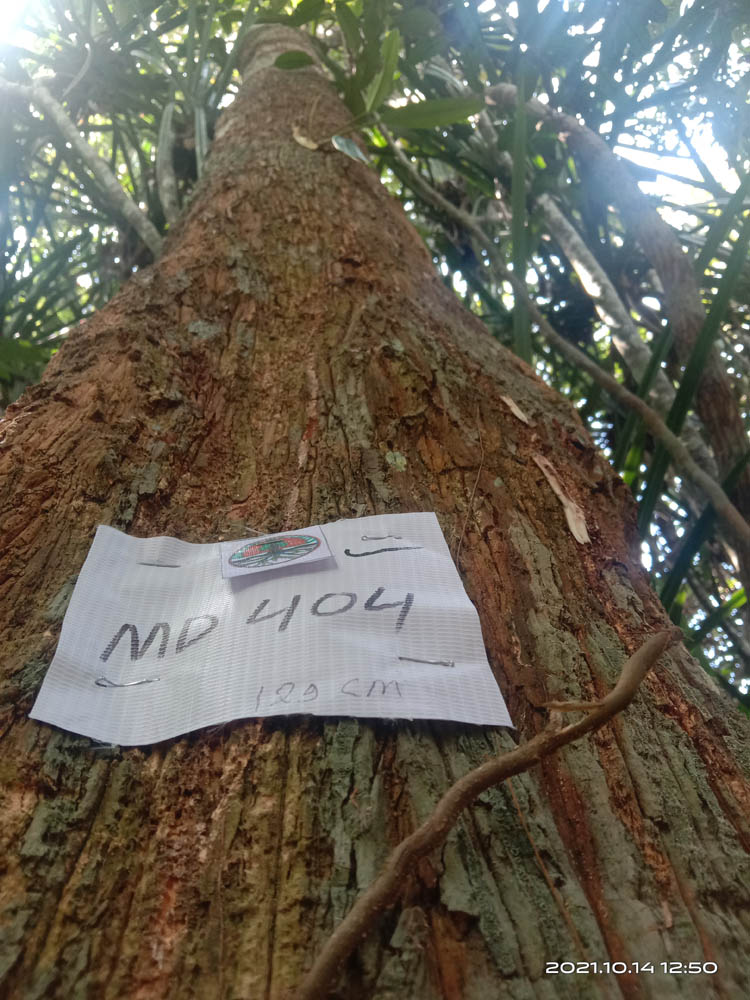 MD 404
129 CM
2021.10.14 12:50